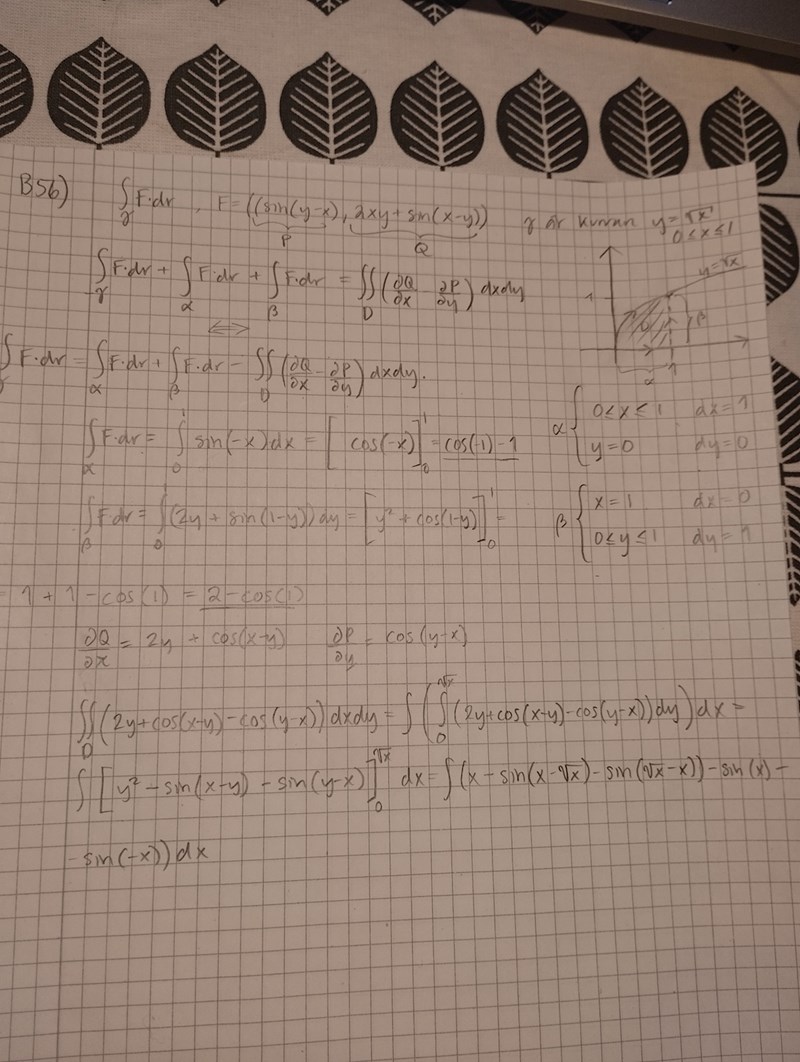 B56) ∫_γ F·dr , F = ((sin(y-x), 2xy + sin(x-y)) γ är kurvan y = √x
P Q 0 ≤ x ≤ 1
∫_-γ F·dr + ∫_α F·dr + ∫_β F·dr = ∬_D (∂Q/∂x - ∂P/∂y) dxdy
y=√x
1
β
α
1
⟺
∫_γ F·dr = ∫_α F·dr + ∫_β F·dr - ∬_D (∂Q/∂x - ∂P/∂y) dxdy.
∫_α F·dr = ∫_0^1 sin(-x) dx = [cos(-x)]_0^1 = cos(-1) - 1
α { 0 ≤ x ≤ 1 dx = 1
y = 0 dy = 0
∫_β F·dr = ∫_0^1 (2y + sin(1-y)) dy = [y² + cos(1-y)]_0^1 =
β { x = 1 dx = 0
0 ≤ y ≤ 1 dy = 1
= 1 + 1 - cos(1) = 2 - cos(1)
∂Q/∂x = 2y + cos(x-y) ∂P/∂y = cos(y-x)
∬_D (2y + cos(x-y) - cos(y-x)) dxdy = ∫ (∫_0^√x (2y + cos(x-y) - cos(y-x)) dy) dx =
∫ [y² - sin(x-y) - sin(y-x)]_0^√x dx = ∫ (x - sin(x-√x) - sin(√x-x)) - sin(x) -
- sin(-x)) dx